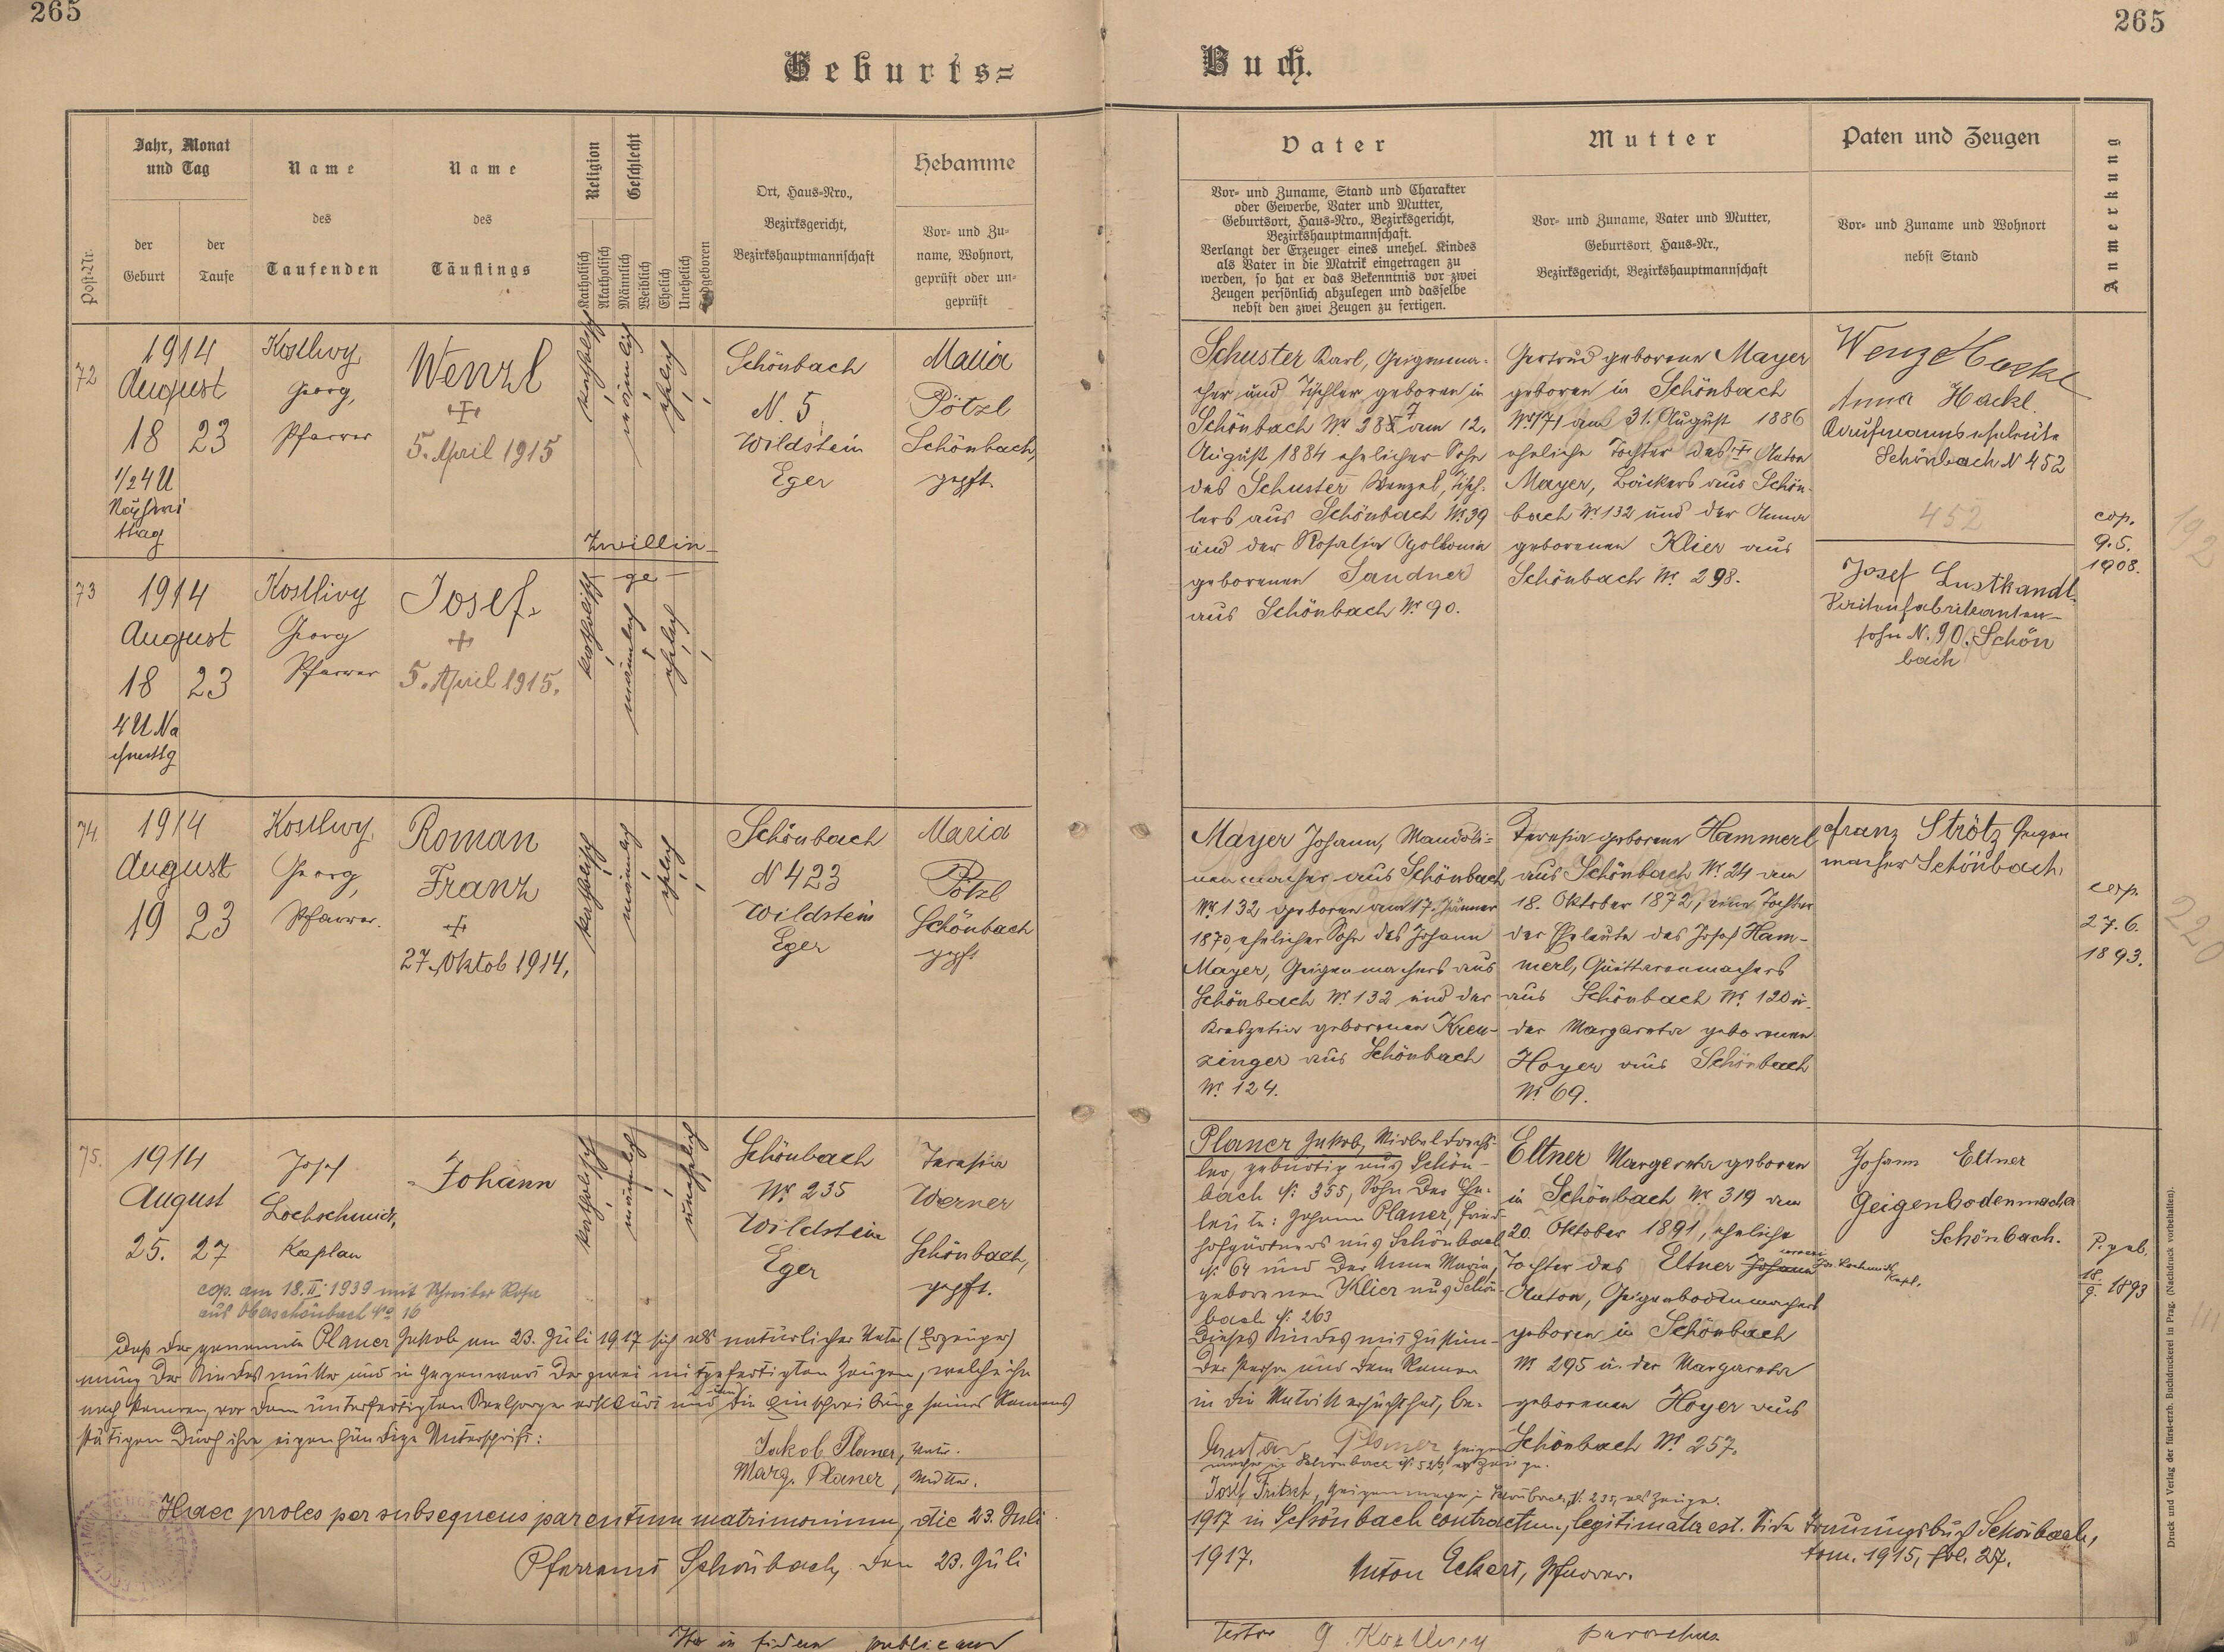 265
265
Geburts=
Buch.
Post-Nr.
Jahr, Monat
und Tag
der
Geburt
der
Taufe
Name
des
Taufenden
Name
des
Täuflings
Religion
Katholisch
Akatholisch
Geschlecht
Männlich
Weiblich
Ehelich
Unehelich
Ort, Haus-Nro.,
Bezirksgericht,
Bezirkshauptmannschaft
Hebamme
Vor- und Zu-
name, Wohnort,
geprüft oder un-
geprüft
Vater
Vor- und Zuname, Stand und Charakter
oder Gewerbe, Vater und Mutter,
Geburtsort, Haus-Nro., Bezirksgericht,
Bezirkshauptmannschaft.
Verlangt der Erzeuger eines unehel. Kindes
als Vater in die Matrik eingetragen zu
werden, so hat er das Bekenntnis vor zwei
Zeugen persönlich abzulegen und dasselbe
nebst den zwei Zeugen zu fertigen.
Mutter
Vor- und Zuname, Vater und Mutter,
Geburtsort, Haus-Nr.,
Bezirksgericht, Bezirkshauptmannschaft
Paten und Zeugen
Vor- und Zuname und Wohnort
nebst Stand
Anmerkung
72
1914
August
18 23
1/2 4 U
Nachmi
ttag
Kostlivy
Georg,
Pfarrer
Wenzl
+
5. April 1915
katholisch
männlich
ehelich
Schönbach
N. 5
Wildstein
Eger
Maria
Pötzl
Schönbach,
gepft.
Schuster Karl, Geigenma-
cher und Tischler geboren in
Schönbach Nr 387 am 12.
August 1884 ehelicher Sohn
des Schuster Wenzel, Tisch-
lers aus Schönbach Nr 39
und der Rosalia Apollonia
geborenen Sandner
aus Schönbach Nr 90.
Gertrud geborene Mayer
geboren in Schönbach
Nr 171 am 31. August 1886
eheliche Tochter des + Anton
Mayer, Bäckers aus Schön-
bach Nr 132 und der Anna
geborenen Klier aus
Schönbach Nr 298.
Wenzl Hackl
Anna Hackl
Kaufmannseheleute
Schönbach N 452
452
cop.
9.5.
1908.
192
Zwillin-
ge
73
1914
August
18 23
4 U Na
chmttg
Kostlivy
Georg
Pfarrer
Josef
+
5. April 1915.
katholisch
männlich
ehelich
Josef Lustkandl
Saitenfabrikanten-
sohn N. 90. Schön
bach
74
1914
August
19 23
Kostlivy
Georg,
Pfarrer.
Roman
Franz
+
27. Oktob 1914,
katholisch
männlich
ehelich
Schönbach
N 423
Wildstein
Eger
Maria
Pötzl
Schönbach
gepft
Mayer Johann, Mandoli-
nenmacher aus Schönbach
Nr 132 geboren am 17. Jänner
1870, ehelicher Sohn des Johann
Mayer, Geigenmachers aus
Schönbach Nr 132 und der
Kreszetia geborenen Kreu-
zinger aus Schönbach
Nr 124.
Teresia geborene Hammerl
aus Schönbach Nr 24 am
18. Oktober 1872, eine Tochter
der Eheleute des Josef Ham-
merl, Guittarenmachers
aus Schönbach Nr 120 u.
der Margareta geborenen
Hoyer aus Schönbach
Nr 69.
Franz Strötz Geigen
macher Schönbach
cop.
27.6.
1893.
220
75.
1914
August
25. 27
Josef
Lochschmidt,
Kaplan
Johann
katholisch
männlich
unehelich
Schönbach
Nr 235
Wildstein
Eger
Teresia
Werner
Schönbach,
gepft.
Planer Jakob, Wirbeldrechs-
ler, gebürtig aus Schön-
bach N: 355, Sohn der Ehe-
leute: Johann Planer, Fried-
hofgärtners aus Schönbach
N: 64 und der Anna Maria,
geborenen Klier aus Schön-
bach N: 263
Eltner Margareta geboren
in Schönbach Nr 319 am
20. Oktober 1891, eheliche
Tochter des Eltner Johann
Anton, Geigenbodenmachers
geboren in Schönbach
Nr 295 u. der Margareta
geborenen Hoyer aus
Schönbach Nr 257.
Johann Eltner
Geigenbodenmacher
Schönbach.
P. geb.
18/9. 1893
111
cop. am 18.II. 1939 mit Schreiber Rosa
aus Oberschönbach No 16
Daß der genannte Planer Jakob am 23. Juli 1917 sich als natürlicher Vater (Erzeuger)
dieses Kindes mit Zustim-
mung der Kindesmutter und in Gegenwart der zwei mitgefertigten Zeugen, welche ihn
der Person und dem Namen
nach kennen, vor dem unterfertigten Seelsorger erklärt und um die Einschreibung seines Namens
in die Matrik ersucht hat, be-
stätigen durch ihre eigenhändige Unterschrift:
Jakob Planer, Vater.
Marg. Planer, Mutter.
Planer Geigen
macher in Schönbach N: 526, als Zeuge.
Josef Fritsch, Geigenmacher in Schönbach, N: 235, als Zeuge.
Haec proles per subsequens parentum matrimonium, die 23. Juli
1917 in Schönbach contractum, legitimata est. Siehe Trauungsbuch Schönbach,
tom. 1915, fol. 27.
Pfarramt Schönbach, den 23. Juli
1917. Anton Eckert, Pfarrer.
Ita in fidem publicam
Testor G. Kostlivy parochus
Druck und Verlag der fürsterzb. Buchdruckerei in Prag. (Nachdruck vorbehalten).